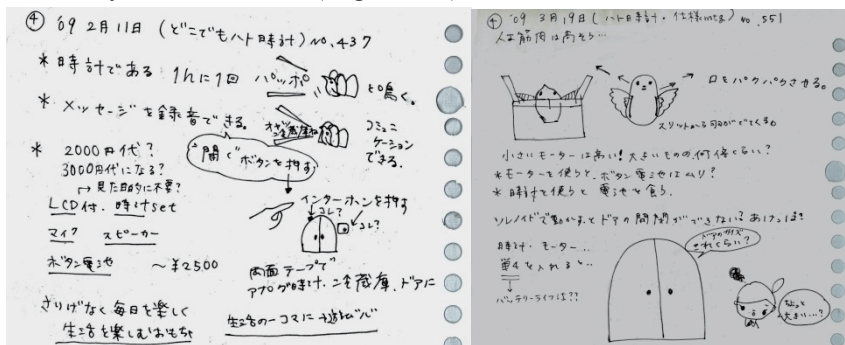 ④ '09 2月11日 (どこでもハト時計) No.437
* 時計である 1hに1回 パッポ と鳴く。
* メッセージを録音できる。
コミュニケーションできる。
"聞く"ボタンを押す
* 2000円代?
3000円代になる?
→見た目的に不要?
LCD付. 時計set
マイク スピーカー
ボタン電池 〜¥2500
インターホンを押す
コレ?
コレ?
両面テープで
アナログ時計、冷蔵庫、ドアに
さりげなく毎日を楽しく
生活を楽しむおもちゃ
生活の一コマに
④ '09 3月19日 (ハト時計・仕様mtg) No.551
人工筋肉は高そう…
口をパクパクさせる。
スリットから羽がでてくる。
小さいモーターは高い! 大きいものの何倍くらい?
* モーターを使うと、ボタン電池はムリ?
* 時計を使うと 電池を食う.
ソレノイドで動かすとドアの開閉ができない?
時計・モーター…
単4を入れると…
バッテリーライフは??
ドアのサイズ
これくらい?
ちょっと
大きい…?